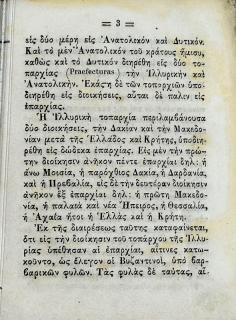 — 3 —
εἰς δύο μέρη εἰς Ἀνατολικὸν καὶ Δυτικόν.
Καὶ τὸ μὲν Ἀνατολικὸν τοῦ κράτους ἥμισυ,
καθὼς καὶ τὸ Δυτικὸν διῃρέθη εἰς δύο το-
παρχίας (Praefecturas) τὴν Ἰλλυρικὴν καὶ
Ἀνατολικήν. Ἑκάστη δὲ τῶν τοπαρχιῶν ὑπο-
διῃρέθη εἰς διοικήσεις, αὗται δὲ πάλιν εἰς
ἐπαρχίας.
Ἡ Ἰλλυρικὴ τοπαρχία περιλαμβάνουσα
δύο διοικήσεις, τὴν Δακίαν καὶ τὴν Μακεδο-
νίαν μετὰ τῆς Ἑλλάδος καὶ Κρήτης, ὑποδιῃ-
ρέθη εἰς δώδεκα ἐπαρχίας. Εἰς μὲν τὴν πρώ-
την διοίκησιν ἀνῆκον πέντε ἐπαρχίαι δηλ: ἡ
ἄνω Μοισία, ἡ παρόχθιος Δακία, ἡ Δαρδανία,
καὶ ἡ Πρεβαλία, εἰς δὲ τὴν δευτέραν διοίκησιν
ἀνῆκον ἓξ ἐπαρχίαι δηλ: ἡ πρώτη Μακεδο-
νία, ἡ παλαιὰ καὶ νέα Ἤπειρος, ἡ Θεσσαλία,
ἡ Ἀχαΐα ἤτοι ἡ Ἑλλὰς καὶ ἡ Κρήτη.
Ἐκ τῆς διαιρέσεως ταύτης καταφαίνεται,
ὅτι εἰς τὴν διοίκησιν τοῦ τοπάρχου τῆς Ἰλλυ-
ρίας ὑπέθησαν αἱ ἐπαρχίαι, αἵτινες κατῳ-
κοῦντο, ὡς ἔλεγον οἱ Βυζαντινοί, ὑπὸ βαρ-
βαρικῶν φυλῶν. Τὰς φυλὰς δὲ ταύτας, αἵ-